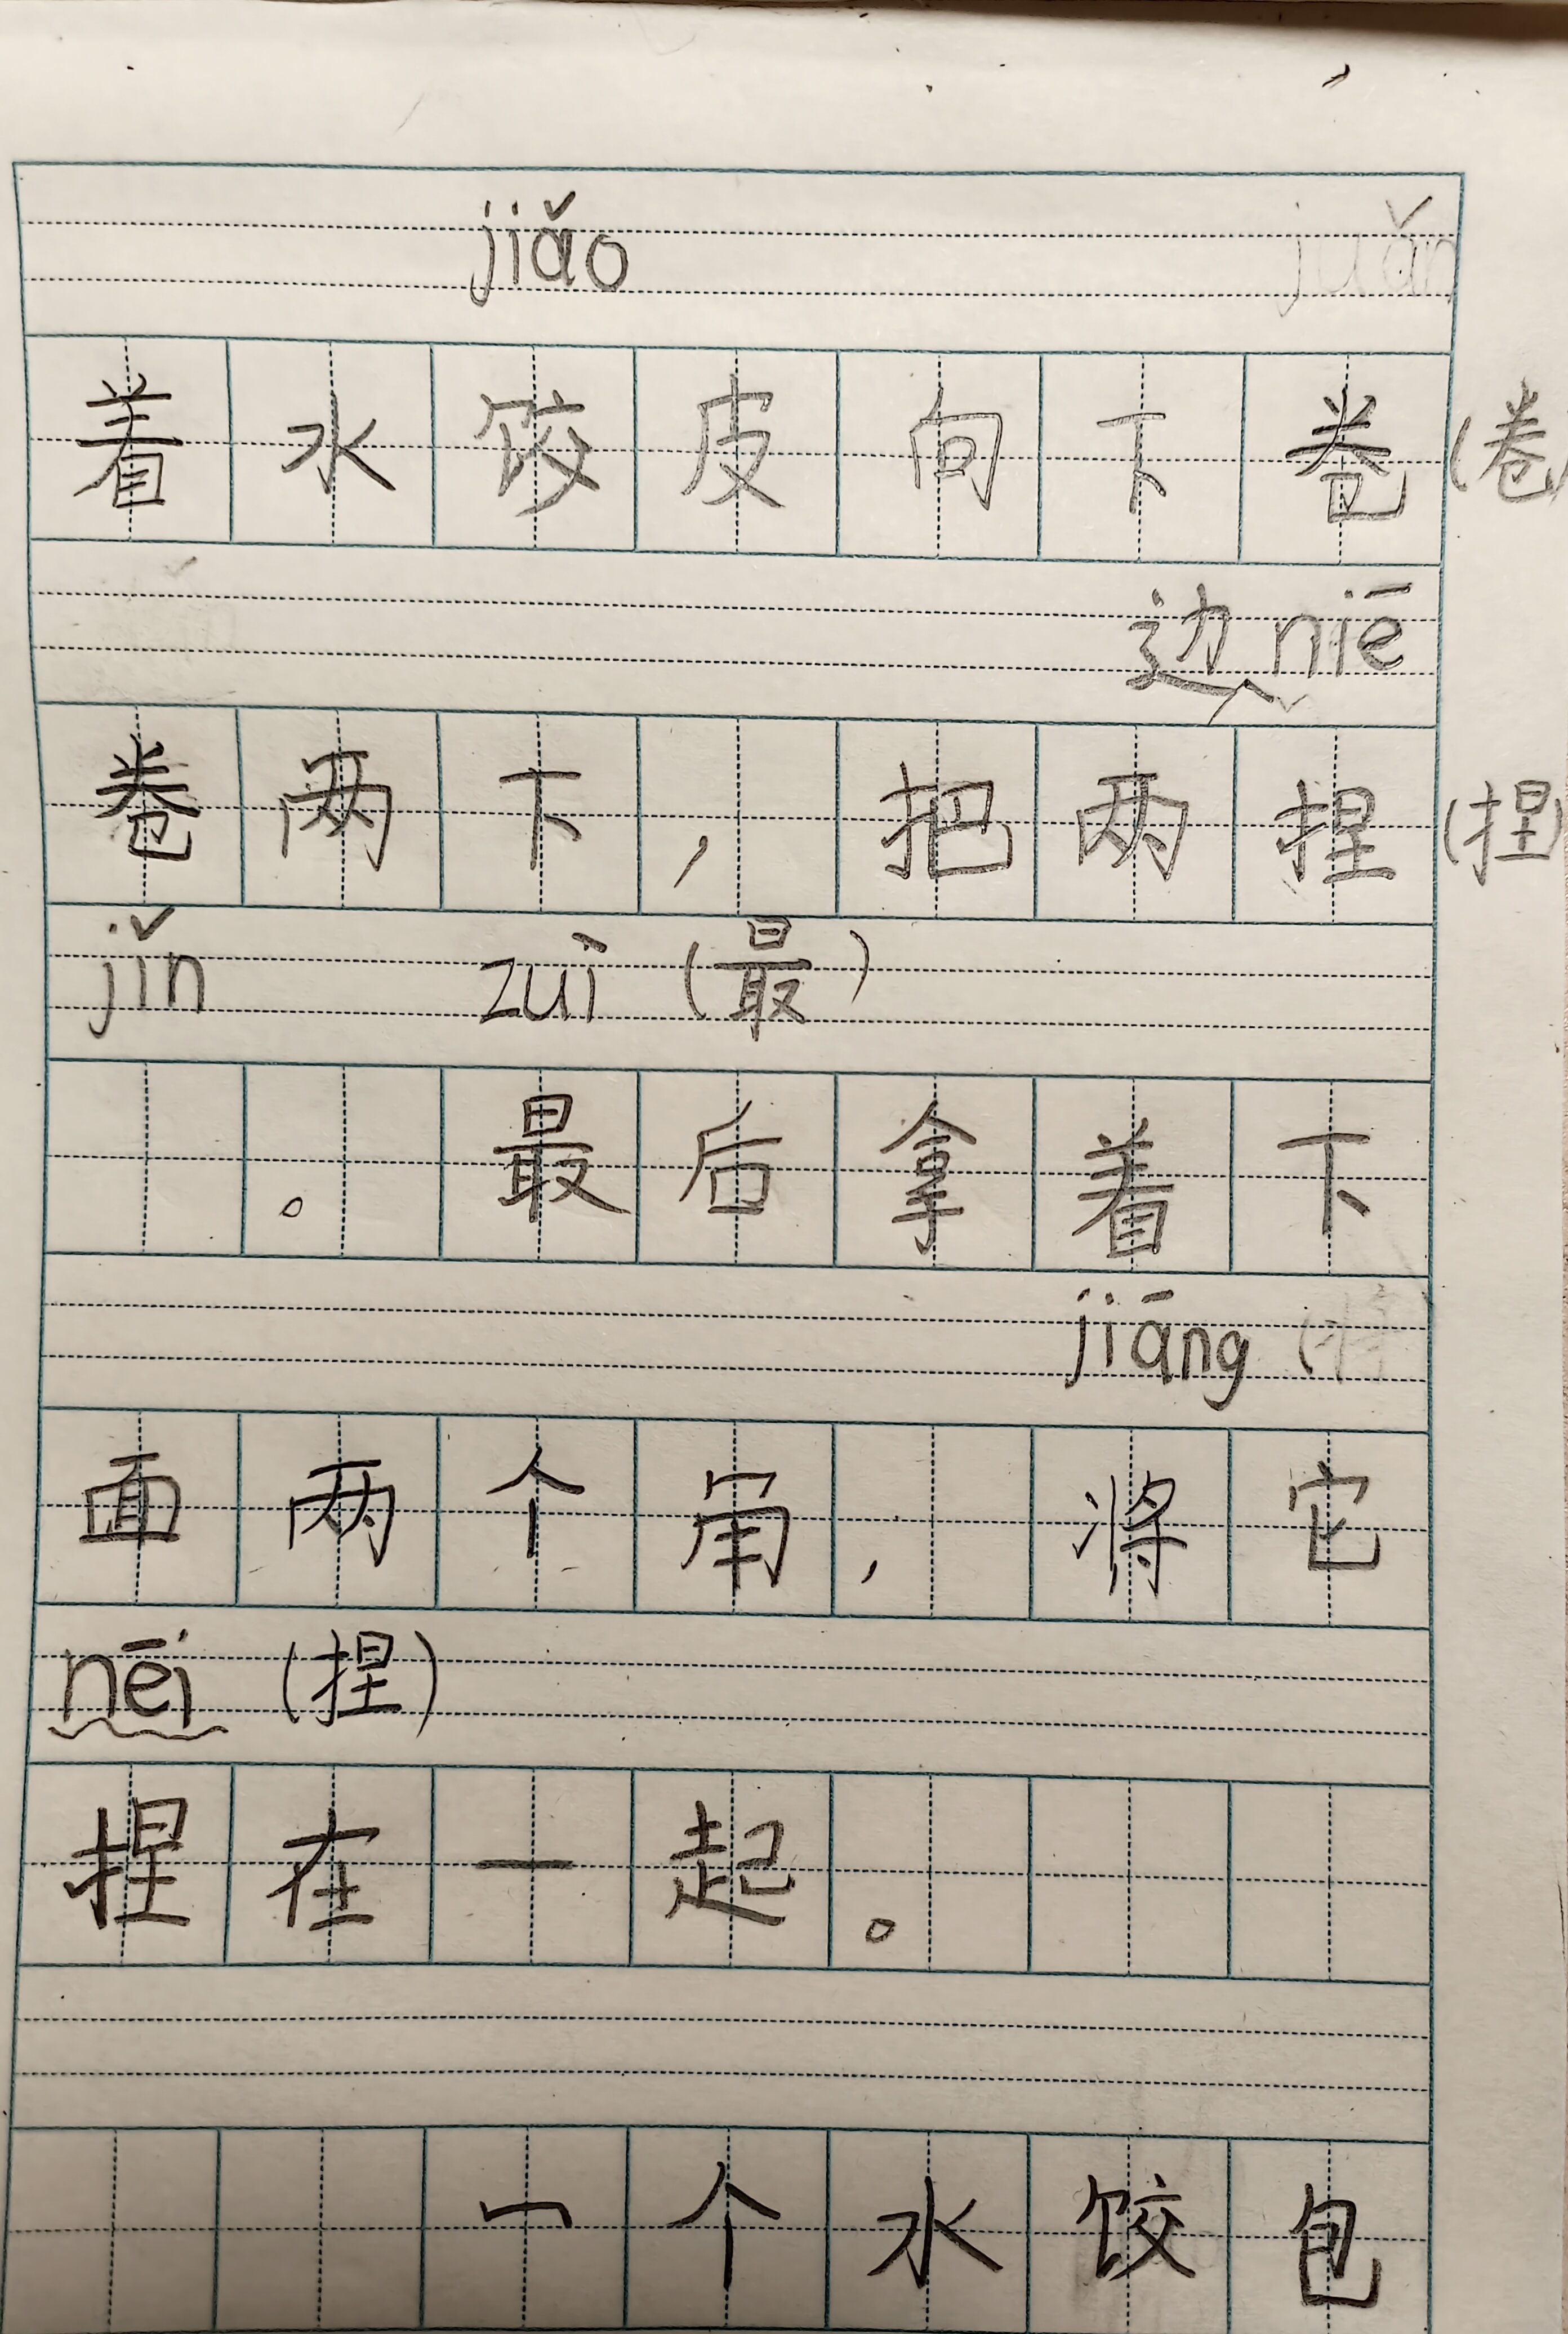 jiǎo juǎn
着水饺皮向下卷(卷)
边 niē
卷两下，把两捏(捏)
jǐn zuì (最)
。最后拿着下
jiāng
面两个角，将它
nēi (捏)
捏在一起。
一个水饺包